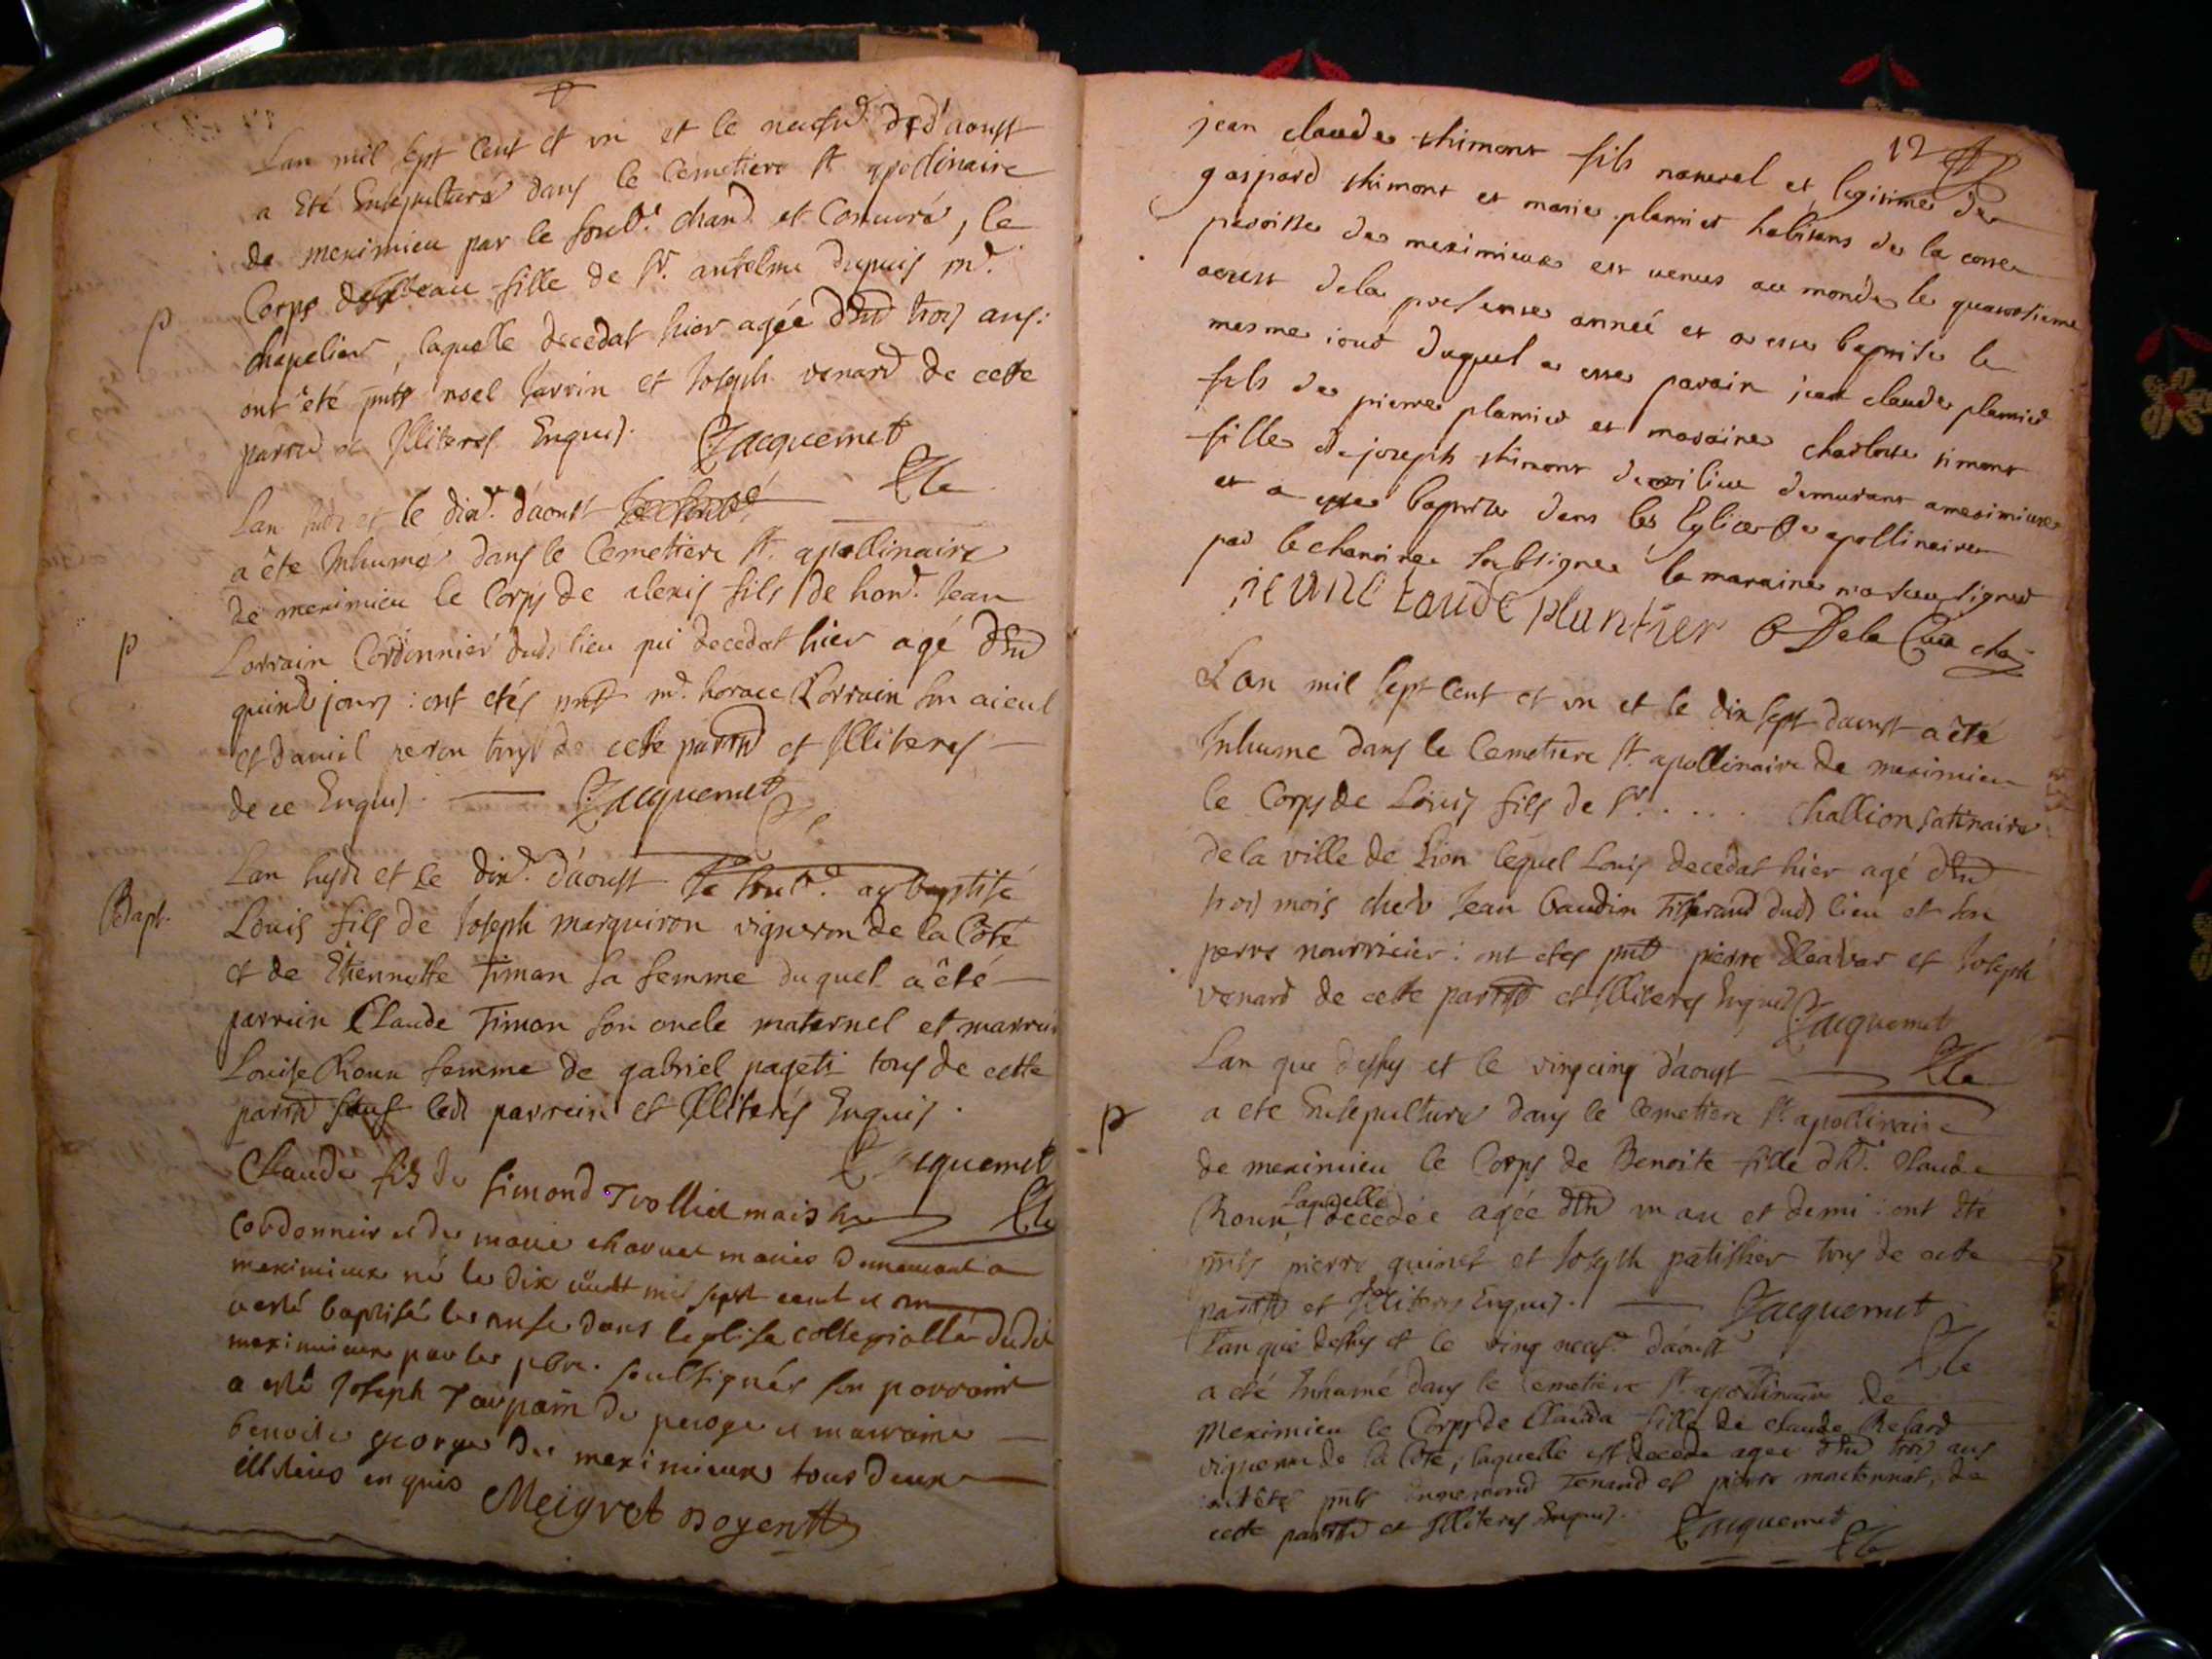 Lan mil sept cent et un et le neufv.e d'aoust
a Eté Ensepulturé dans le Cemetiere St. apollinaire
de meximieu par le soub.é chan.e et Concuré, le
Corps fille de Sr. antelme dupuis m.d
chapelier, laquelle decedat hier agée d'En.n trois ans:
ont été pnts noel Jarrin et Joseph venard de cette
parr.e et Illiterés Enquis. Jacquemet
p
Lan susd. et le dix.e d'aoust
a ête Inhumé dans le Cemetiere St. apollinaire
de meximieu le Corps de alexis fils de hon.e Jean
Lorrain Cordonnier dud. lieu qui decedat hier agé d'En.n
quinze jours: ont etés pnts m.d horace Lorrain son aieul
et Daniel peron tous de cette parr.e et Illiterés
de ce Enquis. Jacquemet
p
Lan susd. et le dix.e d'aoust le soub.é ay baptisé
Bapt.
Louis fils de Joseph marguiron vigneron de la Côte
et de Etiennette Timon sa femme duquel a êté
parrein Claude Timon son oncle maternel et marrein
Louise Roux femme de gabriel pageti tous de cette
parr.e sauf led. parrein et Illiterés Enquis.
Jacquemet
Claude fils de simond Trolliet maistre
Cordonnier et de marie charvet mariés demeurant a
meximieux né le dix aoust mil sept cent et un
a esté baptisé le onse dans leglise collegialle dudit
meximieux par les pbre. soubsignés son parrain
a esté Joseph Taupain de peroge et marraine
benoite george de meximieux tous deux
illiterés enquis Meigret Doyen
12
jean claude thimont fils naturel et legitime de
gaspard thimont et marie plantier habitans de la coste
paroisse de meximieux est venus au monde le quatorsieme
aoust dela presente anneé et a esté baptise le
mesme iour duquel a esté parain jean claude plantier
fils de pierre plantier et maraine charlotte timont
fille de joseph thimont demurant a meximieux
et a esté baptise dans les Eglise St apollinaire
par le chanoine soubsigne la maraine na sceu signer
jeanclaude plantier De la Cua cha
Lan mil sept cent et un et le dix sept d'aoust a êté
Inhumé dans le Cemetiere St. apollinaire de meximieu
le Corps de Louis fils de Sr. . . . . Challion satinaire
de la ville de Lion lequel Louis decedat hier agé d'En.n
trois mois chez Jean baudin Tisserand dud. lieu et son
perre nourricier: ont etes pnts pierre et Joseph
venard de cette parr.e et Illiterés Enquis Jacquemet
Lan que dessus et le vingcinq d'aoust
p
a ete Ensepulturé dans le Cemetiere St. apollinaire
de meximieu le Corps de Benoite fille d'h.e Claude
Roux, Laquelle decedée agée d'En.n un an et demi: ont été
pnts pierre guinet et Joseph patissier tous de cette
parr.e et Illiterés Enquis. Jacquemet
Lan que dessus et le ving neuf.e d'aoust
a eté Inhumé dans le Cemetiere St. apollinaire de
Meximieu le Corps de Clauda fille de claude Besard
vigneron de la Côte, laquelle est decedé agée d'En.n trois ans
ont êtés pnts ennemond Tenand et pierre martonnat, de
cette parr.e et Illiterés Enquis. Jacquemet